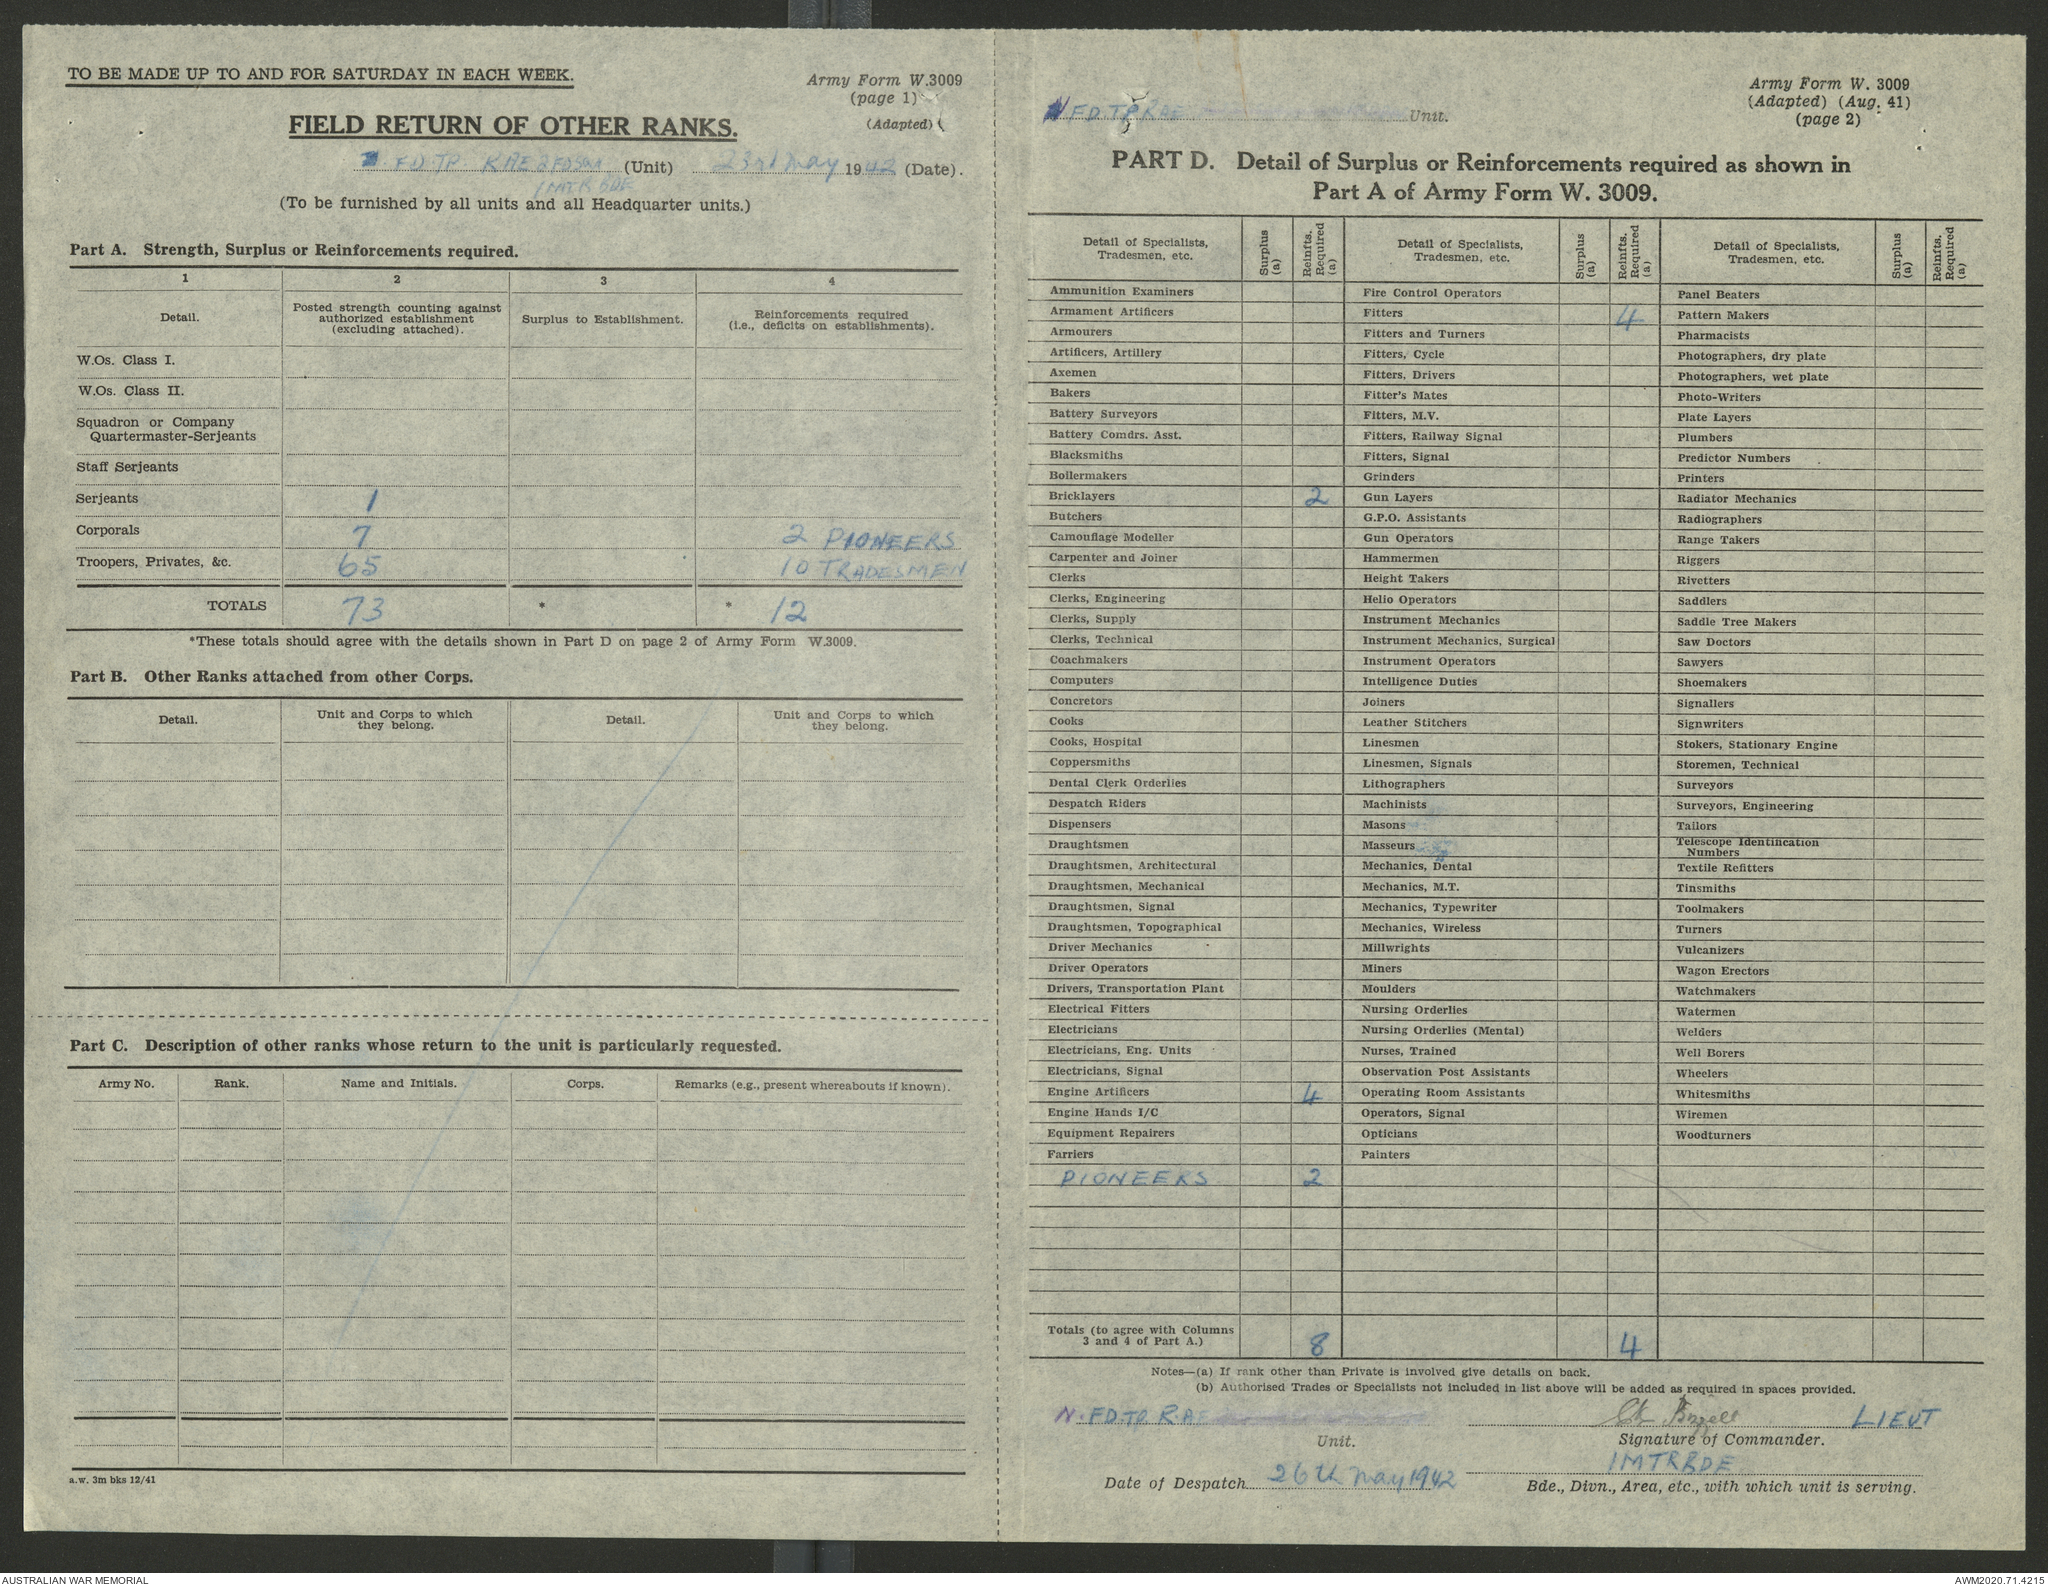 TO BE MADE UP TO AND FOR SATURDAY IN EACH WEEK.
Army Form W.3009
(page 1)
(Adapted)
FIELD RETURN OF OTHER RANKS.
FD. TP (Unit) 23rd May 1942 (Date).
1 MTR BDE
(To be furnished by all units and all Headquarter units.)
Part A. Strength, Surplus or Reinforcements required.
1 2 3 4
Detail. Posted strength counting against authorized establishment (excluding attached). Surplus to Establishment. Reinforcements required (i.e., deficits on establishments).
W.Os. Class I.
W.Os. Class II.
Squadron or Company
Quartermaster-Serjeants
Staff Serjeants
Serjeants 1
Corporals 7 2 PIONEERS
Troopers, Privates, &c. 65 10 TRADESMEN
TOTALS 73 * * 12
*These totals should agree with the details shown in Part D on page 2 of Army Form W.3009.
Part B. Other Ranks attached from other Corps.
Detail. Unit and Corps to which they belong. Detail. Unit and Corps to which they belong.
Part C. Description of other ranks whose return to the unit is particularly requested.
Army No. Rank. Name and Initials. Corps. Remarks (e.g., present whereabouts if known).
a.w. 3m bks 12/41
FD. TP RAE Unit.
Army Form W. 3009
(Adapted) (Aug. 41)
(page 2)
PART D. Detail of Surplus or Reinforcements required as shown in
Part A of Army Form W. 3009.
Detail of Specialists, Tradesmen, etc. Surplus (a) Reinfts. Required (a) Detail of Specialists, Tradesmen, etc. Surplus (a) Reinfts. Required (a) Detail of Specialists, Tradesmen, etc. Surplus (a) Reinfts. Required (a)
Ammunition Examiners Fire Control Operators Panel Beaters
Armament Artificers Fitters 4 Pattern Makers
Armourers Fitters and Turners Pharmacists
Artificers, Artillery Fitters, Cycle Photographers, dry plate
Axemen Fitters, Drivers Photographers, wet plate
Bakers Fitter's Mates Photo-Writers
Battery Surveyors Fitters, M.V. Plate Layers
Battery Comdrs. Asst. Fitters, Railway Signal Plumbers
Blacksmiths Fitters, Signal Predictor Numbers
Boilermakers Grinders Printers
Bricklayers 2 Gun Layers Radiator Mechanics
Butchers G.P.O. Assistants Radiographers
Camouflage Modeller Gun Operators Range Takers
Carpenter and Joiner Hammermen Riggers
Clerks Height Takers Rivetters
Clerks, Engineering Helio Operators Saddlers
Clerks, Supply Instrument Mechanics Saddle Tree Makers
Clerks, Technical Instrument Mechanics, Surgical Saw Doctors
Coachmakers Instrument Operators Sawyers
Computers Intelligence Duties Shoemakers
Concretors Joiners Signallers
Cooks Leather Stitchers Signwriters
Cooks, Hospital Linesmen Stokers, Stationary Engine
Coppersmiths Linesmen, Signals Storemen, Technical
Dental Clerk Orderlies Lithographers Surveyors
Despatch Riders Machinists Surveyors, Engineering
Dispensers Masons Tailors
Draughtsmen Masseurs Telescope Identification Numbers
Draughtsmen, Architectural Mechanics, Dental Textile Refitters
Draughtsmen, Mechanical Mechanics, M.T. Tinsmiths
Draughtsmen, Signal Mechanics, Typewriter Toolmakers
Draughtsmen, Topographical Mechanics, Wireless Turners
Driver Mechanics Millwrights Vulcanizers
Driver Operators Miners Wagon Erectors
Drivers, Transportation Plant Moulders Watchmakers
Electrical Fitters Nursing Orderlies Watermen
Electricians Nursing Orderlies (Mental) Welders
Electricians, Eng. Units Nurses, Trained Well Borers
Electricians, Signal Observation Post Assistants Wheelers
Engine Artificers 4 Operating Room Assistants Whitesmiths
Engine Hands I/C Operators, Signal Wiremen
Equipment Repairers Opticians Woodturners
Farriers Painters
PIONEERS 2
Totals (to agree with Columns 3 and 4 of Part A.) 8 4
Notes—(a) If rank other than Private is involved give details on back.
(b) Authorised Trades or Specialists not included in list above will be added as required in spaces provided.
N. FD. TP R.A.E LIEUT
Unit. Signature of Commander.
1 MTR BDE
Date of Despatch 26th May 1942 Bde., Divn., Area, etc., with which unit is serving.
AUSTRALIAN WAR MEMORIAL AWM2020.71.4215